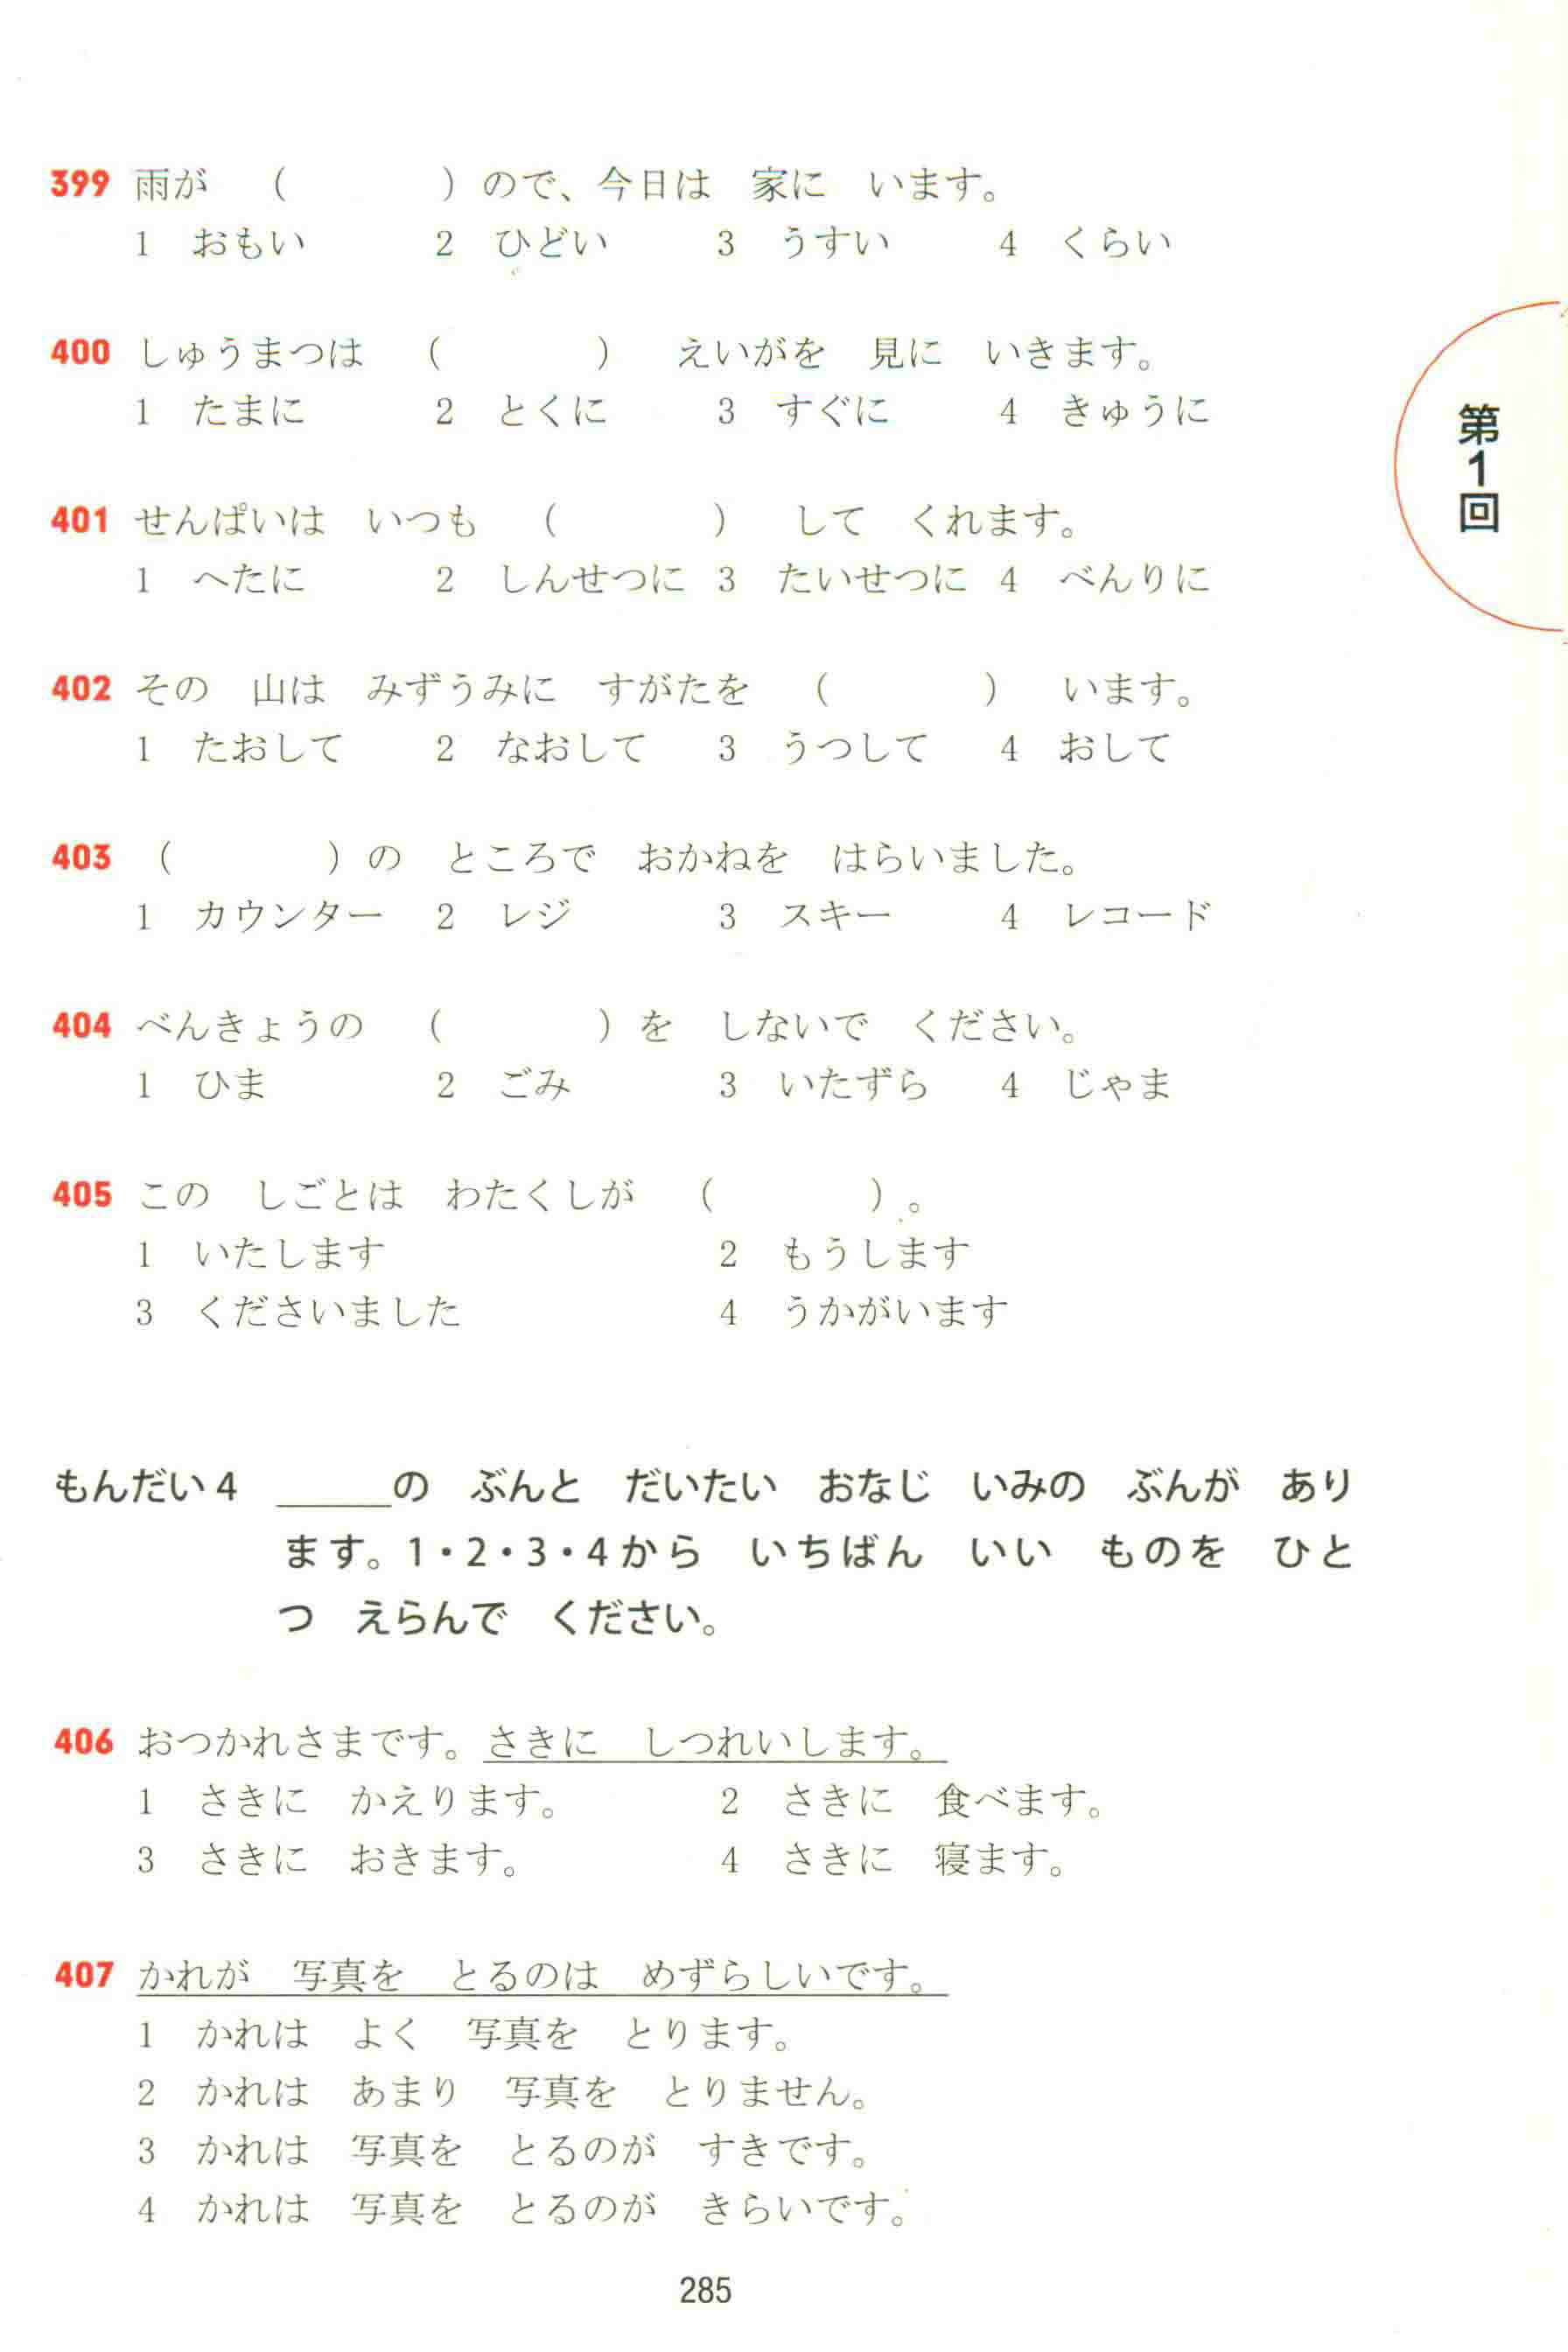 399 雨が （　　　　）ので、今日は　家に　います。
1　おもい　　2　ひどい　　3　うすい　　4　くらい
400 しゅうまつは （　　　　） えいがを　見に　いきます。
1　たまに　　2　とくに　　3　すぐに　　4　きゅうに
401 せんぱいは　いつも （　　　　） して　くれます。
1　へたに　　2　しんせつに　3　たいせつに　4　べんりに
402 その　山は　みずうみに　すがたを （　　　　） います。
1　たおして　　2　なおして　　3　うつして　　4　おして
403 （　　　　）の　ところで　おかねを　はらいました。
1　カウンター　2　レジ　　3　スキー　　4　レコード
404 べんきょうの （　　　　）を　しないで　ください。
1　ひま　　2　ごみ　　3　いたずら　　4　じゃま
405 この　しごとは　わたくしが （　　　　）。
1　いたします　　2　もうします
3　くださいました　　4　うかがいます
もんだい4　＿＿＿の　ぶんと　だいたい　おなじ　いみの　ぶんが　あり
ます。1・2・3・4から　いちばん　いい　ものを　ひと
つ　えらんで　ください。
406 おつかれさまです。さきに　しつれいします。
1　さきに　かえります。　　2　さきに　食べます。
3　さきに　おきます。　　4　さきに　寝ます。
407 かれが　写真を　とるのは　めずらしいです。
1　かれは　よく　写真を　とります。
2　かれは　あまり　写真を　とりません。
3　かれは　写真を　とるのが　すきです。
4　かれは　写真を　とるのが　きらいです。
第1回
285